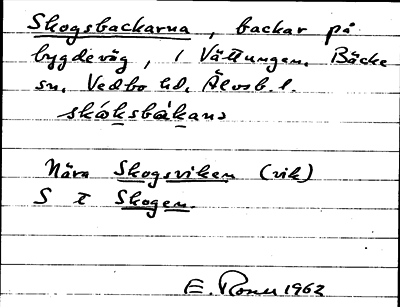 Skogsbackarna, backar på
bygdeväg, i Vättungen. Bäcke
sn, Vedbo hd, Älvsb. l.
skóksbàkanɔ
Nära Skogsviken (vik)
S I Skogen.
E. Roner 1962